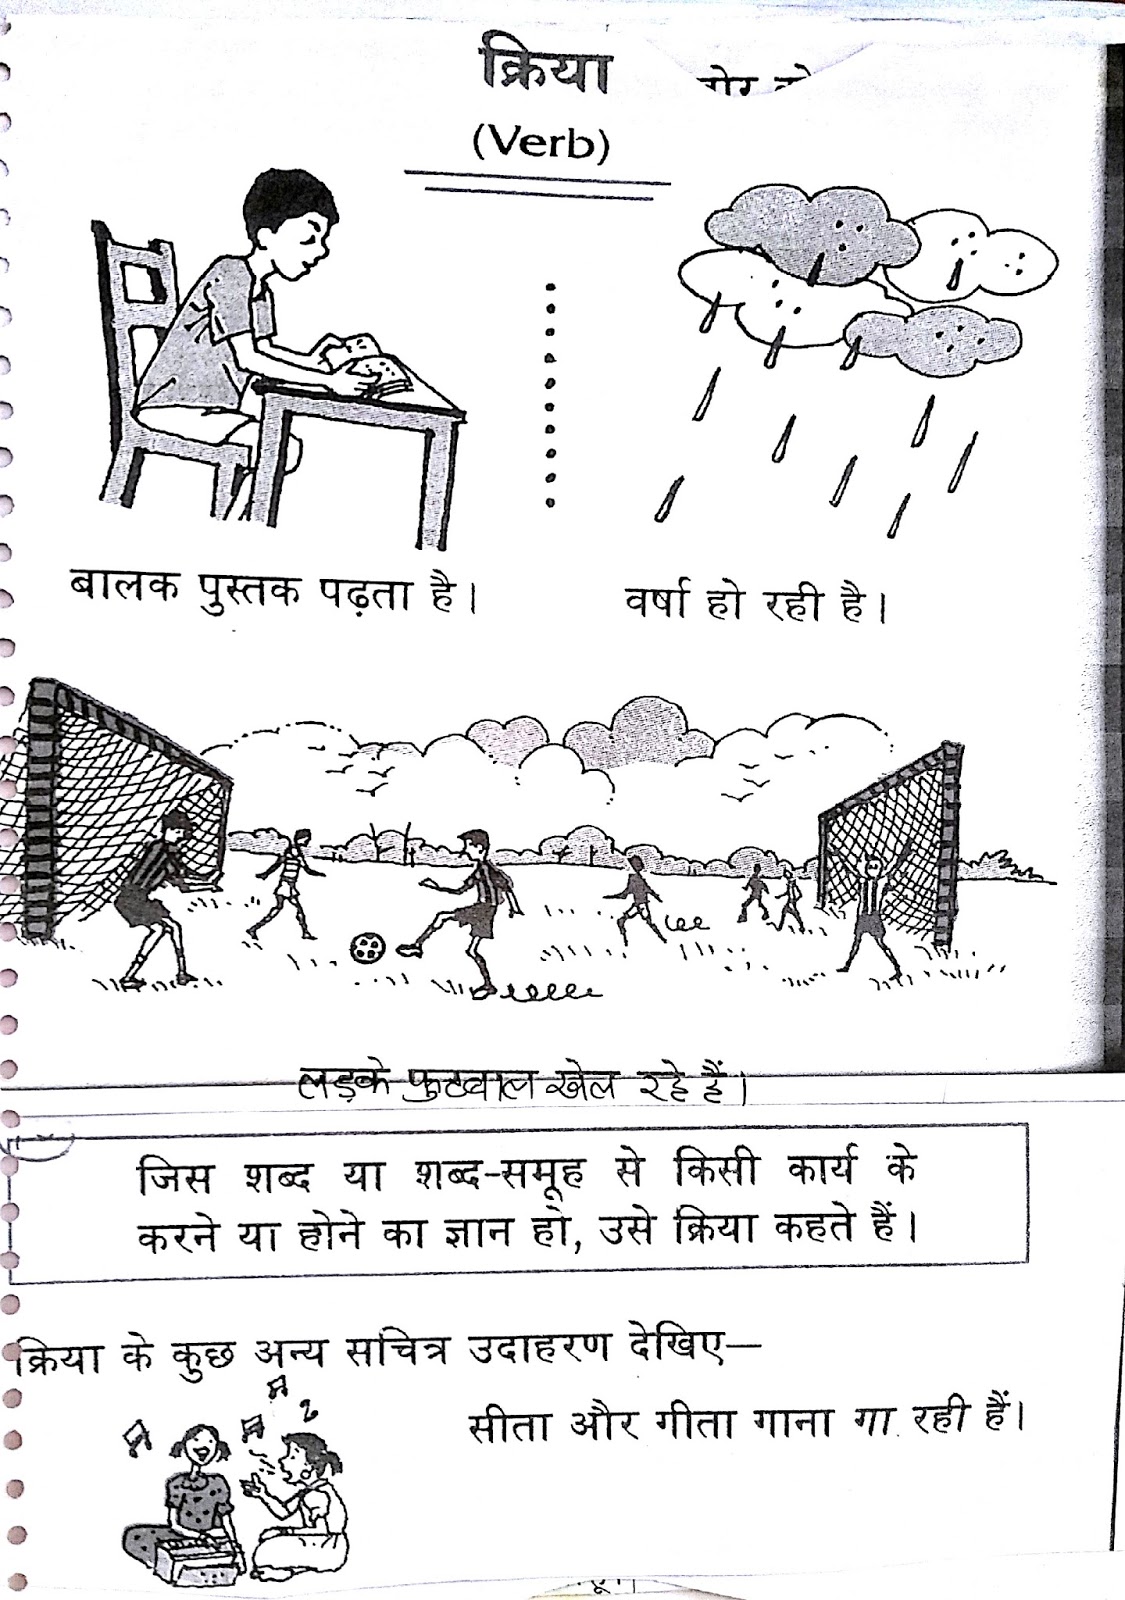 क्रिया
(Verb)
बालक पुस्तक पढ़ता है।
वर्षा हो रही है।
लड़के फुटबाल खेल रहे हैं।
जिस शब्द या शब्द-समूह से किसी कार्य के
करने या होने का ज्ञान हो, उसे क्रिया कहते हैं।
क्रिया के कुछ अन्य सचित्र उदाहरण देखिए—
सीता और गीता गाना गा रही हैं।